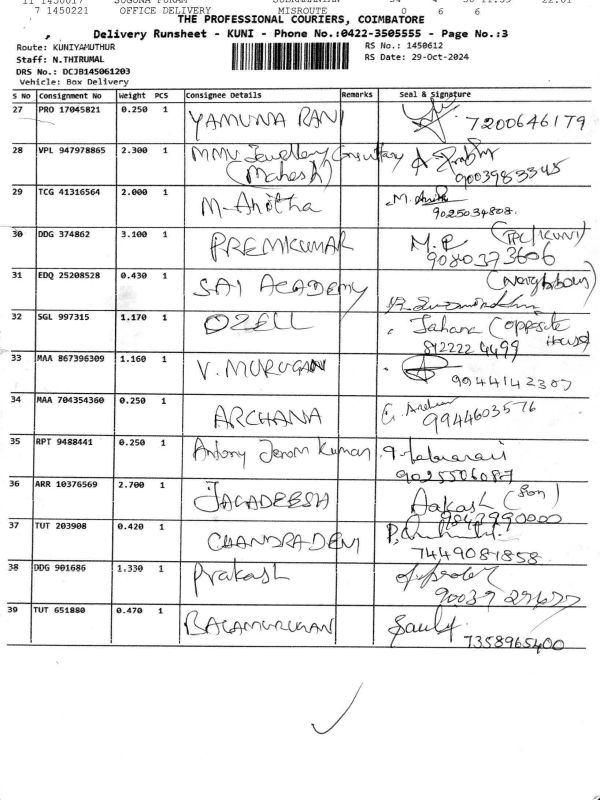 7 1450221 OFFICE DELIVERY MISROUTE 0 6 6
THE PROFESSIONAL COURIERS, COIMBATORE
Delivery Runsheet - KUNI - Phone No.:0422-3505555 - Page No.:3
Route: KUNIYAMUTHUR RS No.: 1450612
Staff: N.THIRUMAL RS Date: 29-Oct-2024
DRS No.: DCJB145061203
Vehicle: Box Delivery
S No Consignment No Weight PCS Consignee Details Remarks Seal & Signature
27 PRO 17045821 0.250 1 YAMUNA RANI 7200646179
28 VPL 947978865 2.300 1 MMV Jewellery Consultary
(Mahesh) 9003983345
29 TCG 41316564 2.000 1 M-Anitha M.
9025034808.
30 DDG 374862 3.100 1 PREMKUMAR M.P (TPC/KUNI)
9080373606
31 EDQ 25208528 0.430 1 SAI ACADEMY (Neighbour)
32 SGL 997315 1.170 1 OZELL Jahana (opposite
House)
812222 4499
33 MAA 867396309 1.160 1 V. MURUGAN
9944142307
34 MAA 704354360 0.250 1 ARCHANA G.
9944603576
35 RPT 9488441 0.250 1 Antony Jerom Kumar
9025506087
36 ARR 10376569 2.700 1 JAGADEESH Aakash (Son)
9843990000
37 TUT 203908 0.420 1 CHANDRADEVI
7449081858
38 DDG 901686 1.330 1 Prakash
39 TUT 651880 0.470 1 BALAMURUGAN
7358965400